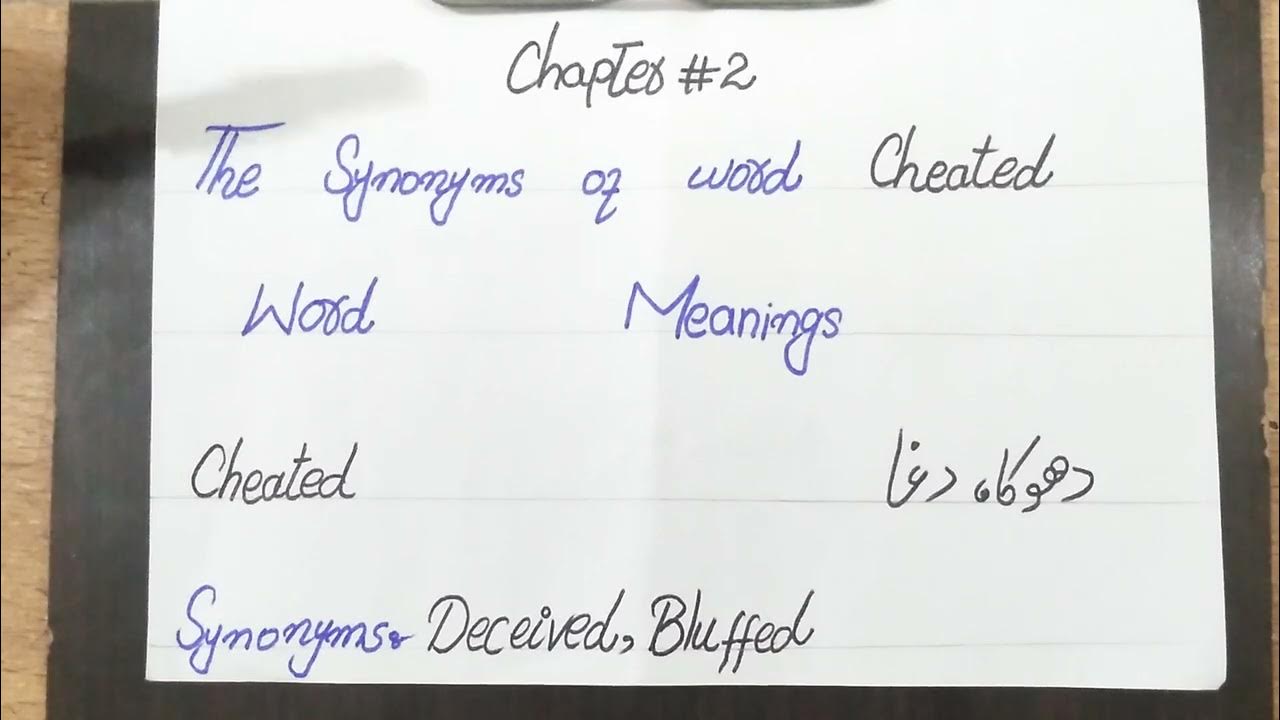 Chapter #2
The Synonyms of word Cheated
Word Meanings
Cheated دھوکا، دغا
Synonyms: Deceived, Bluffed